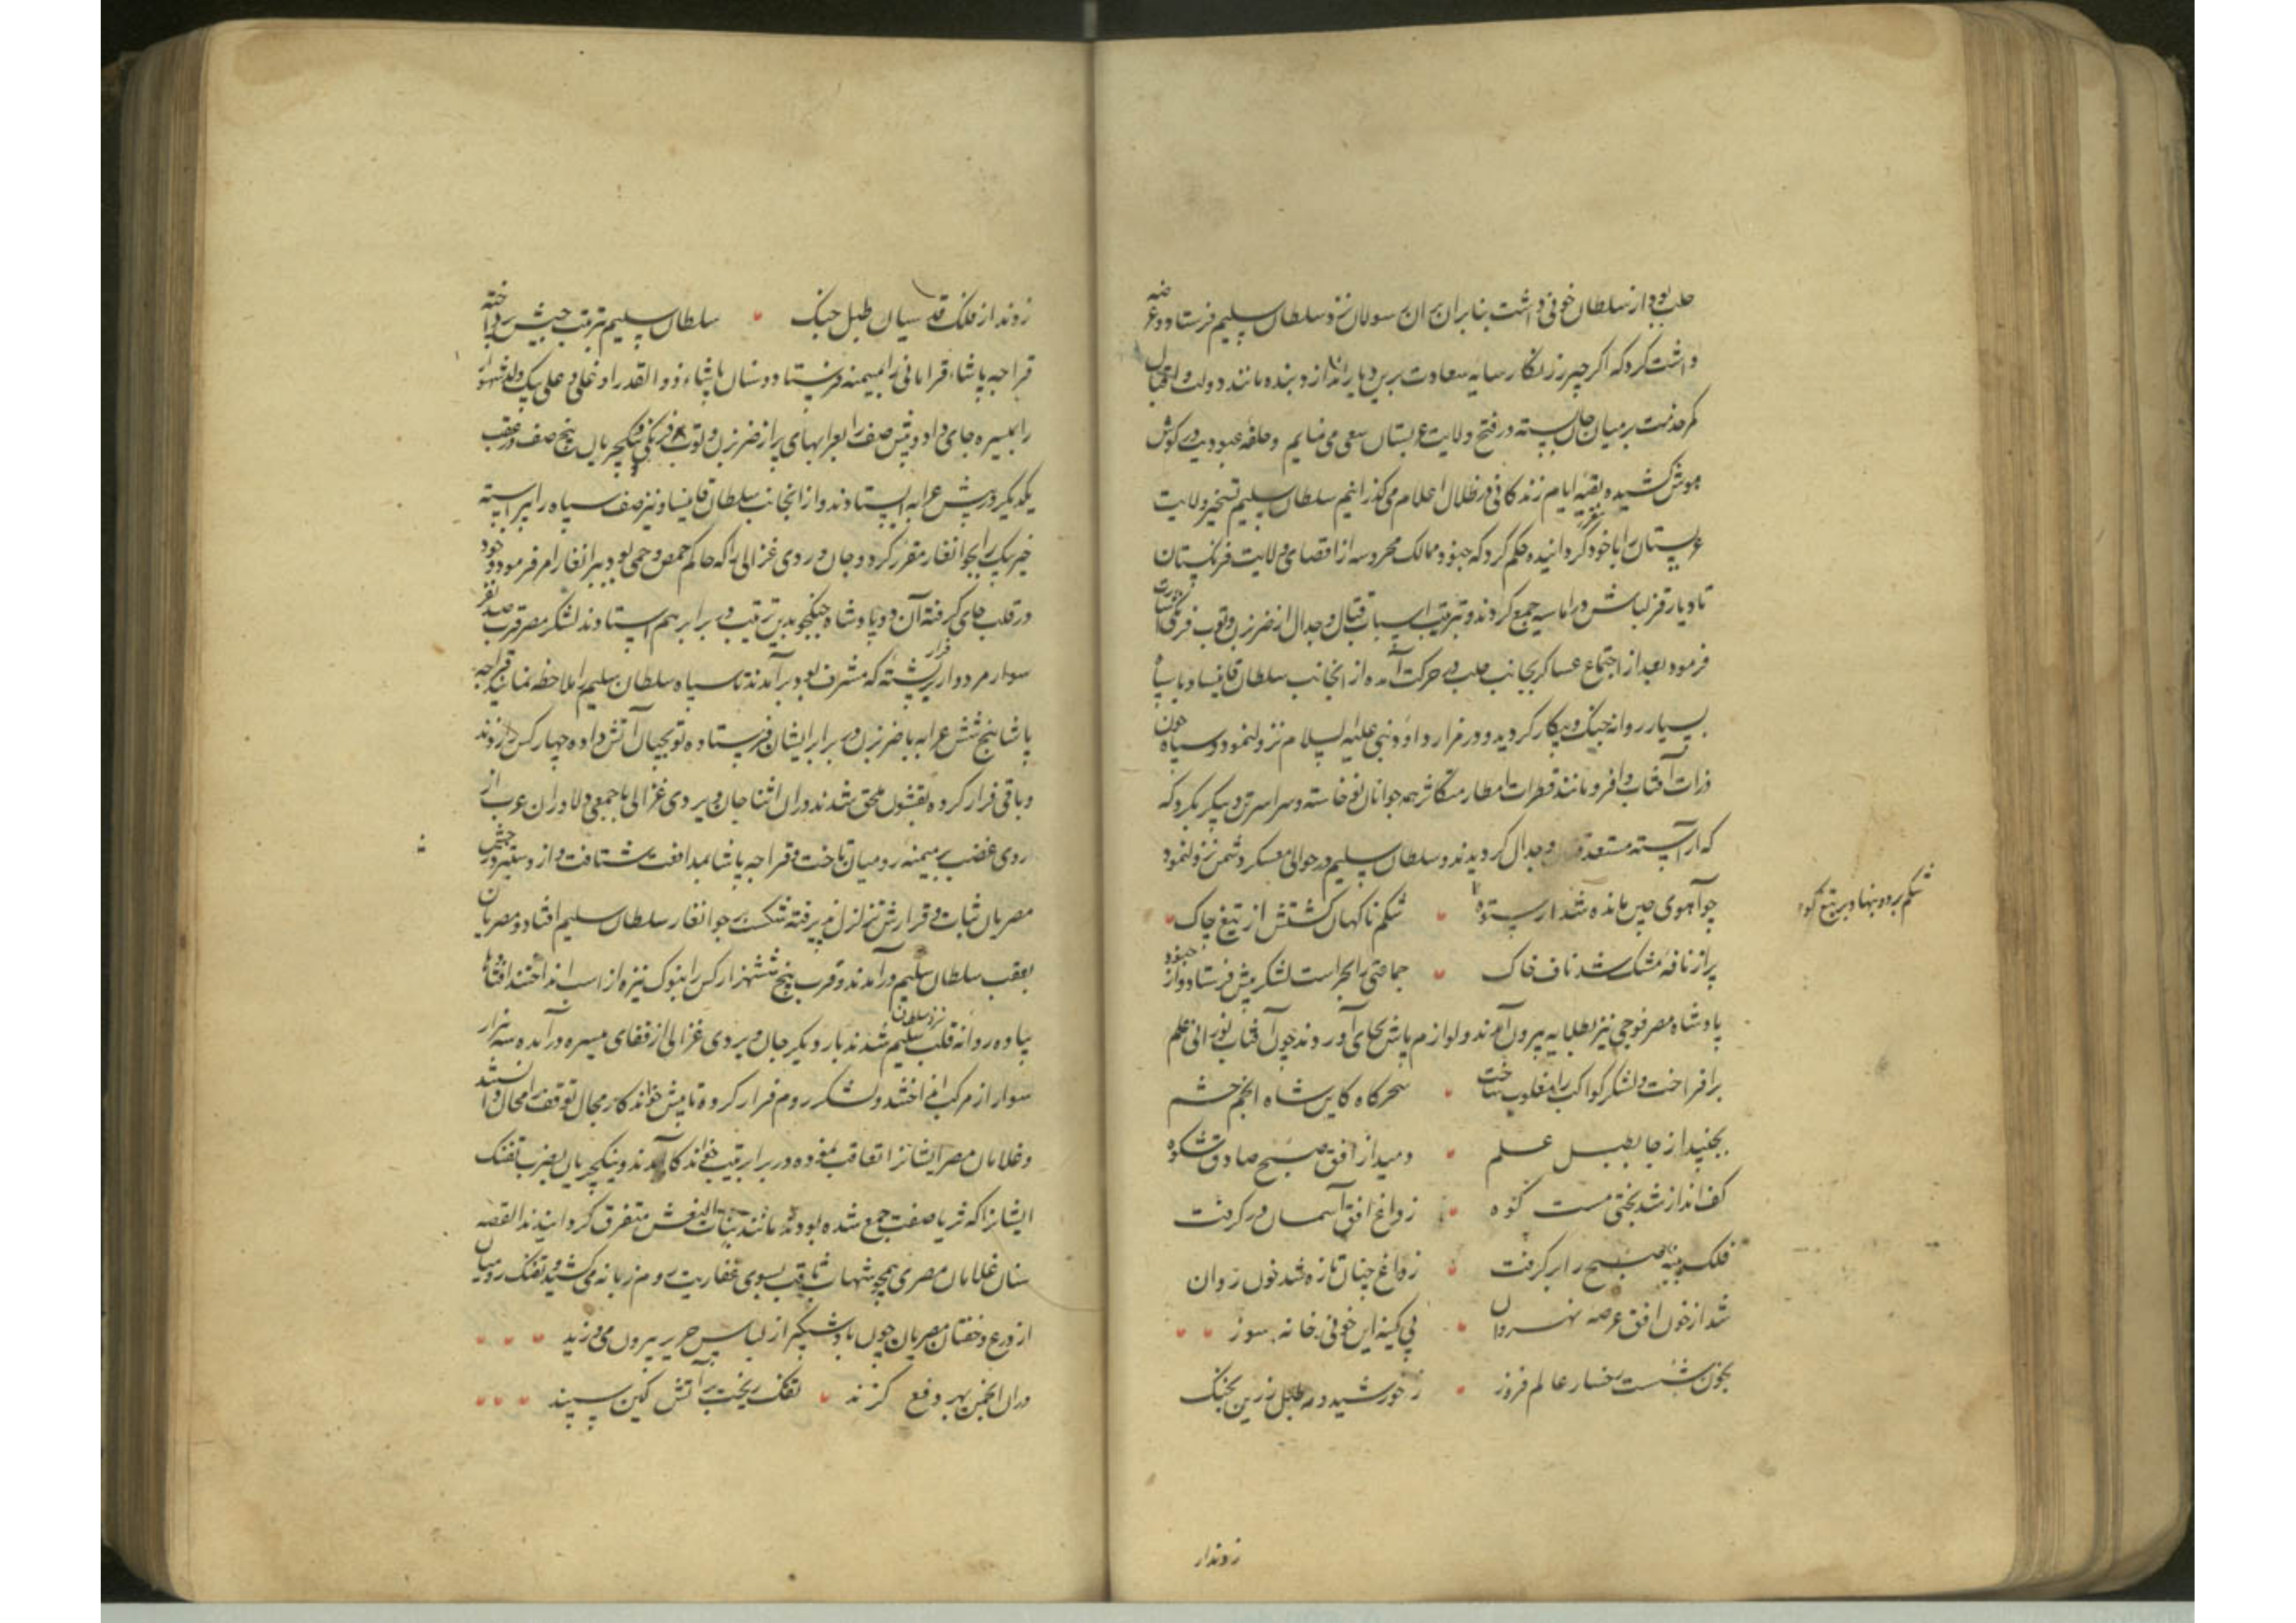 حلب بود از سلطان خوفی داشت بنابران رسولان نزد سلطان سلیم فرستاد و عرضه
داشت کرد که اگر چتر زرنگار سایه سعادت برین دیار اندازد بنده مانند دولت و اقبال
کمر خدمت بر میان جان بسته در فتح ولایت عربستان سعی می نمایم و حلقه عبودیت در کوش
هوش کشیده بقیه ایام زندکانی در ظلال اعلام می کذرانیم سلطان سلیم تسخیر ولایت
عربستان را با خود مقرر کردانیده حکم کرد که جنود ممالک محروسه از اقصای ولایت فرنکستان
تا دیار قزلباش در اماسیه جمع کردند و بترتیب اسباب قتال و جدال از ضرب زن و توب فرنکی اشارت
فرمود بعد از اجتماع عساکر بجانب حلب در حرکت آمده از انجانب سلطان قانیساو با سپاه
بسیار روانه جنک و پیکار کردید و در مزار داود نبی علیه السلام نزول نمود و سپاه چون
ذرات آفتاب وافر و مانند قطرات امطار متکاثر همه جوانان نوخاسته و سراسر تن و پیکر بکردکه
که آراسته مستعد قتال و جدال کردیدند و سلطان سلیم در حوالی معسکر دشمن نزول نمود
چو آهوی چین مانده شد از ستوه • شکم ناکهان کشتش از تیغ چاک •
شکم بردرد بنهاد بر تیغ کوه
پر از نافه مشک شد ناف خاک • جماعتی را بحراست لشکر پیش فرستاد و از جنود
پادشاه مصر فوجی نیز بطلایه بیرون آمدند و لوازم پاس بجای آوردند چون آفتاب نورانی علم
برافراخت و لشکر کواکب را مغلوب ساخت • سحرکاه کاین شاه انجم حشم
بجنبید از جا بطبل علم • دمید از افق صبح صادق شکوه
کف انداز شد بختی مست کوه • ز داغ افق آسمان در کرفت
فلک پنبه صبح را بر کرفت • ز داغ چنان تازه شد خون روان
شد از خون افق عرصه نهروان • پی کینه این خونی خانه سوز • •
بخون شست رخسار عالم فروز • ز خورشید در طبل زرین بجنک
زدند از
زدند از فلک قدسیان طبل جنک • سلطان سلیم ترتیب جیش پرداخته
قراجه پاشاء قرامانی را بمیمنه فرستاد و سنان پاشاء ذوالقدر اوغلی و علی بیک ولد شهسوار
را بمیسره جای داد و پیش صف را بعرابهای پر از ضرب زن و توب فرنکی و ینکچریان پنج صف در عقب
یکدیکر در پیش عرابه ایستادند و از انجانب سلطان قانیساو نیز صف سپاه را پیراسته
خیر بیک را بجوانغار مقرر کرد و جان وردی غزالی را که حاکم حمص و حمی بود ببرانغار امر فرمود و خود
در قلب جای کرفته آن دو پادشاه جنکجو بدین ترتیب در برابر هم ایستادند لشکر مصر قریب صد نفر
سوار مردوار بر پشته که مشرف بود برآمدند تا سپاه سلطان سلیم را ملاحظه نمایند قراجه
پاشا پنج شش عرابه با ضرب زن در برابر ایشان فرستاده توبچیان آتش داده چهار کس را زدند
و باقی فرار کرده بقشون ملحق شدند دران اثنا جان وردی غزالی با جمعی دلاوران عرب از
روی غضب بر میمنه رومیان تاخت و قراجه پاشا بمدافعت شتافت و از دستبرد جیش
مصریان ثبات و قرارش تزلزل پذیرفته شکست بر جوانغار سلطان سلیم افتاد و مصریان
بعقب سلطان سلیم درآمدند و قریب پنج ششهزار کس را بنوک نیزه از اسب انداختند
پیاده روانه قلب نزد سلطان سلیم شدند بار دیکر جان وردی غزالی از قفای میسره درآمده سه هزار
سوار از مرکب انداختند و لشکر روم فرار کرده تا پیش خواندکار مجال توقف را محال دانستند
و غلامان مصر ایشانرا تعاقب نموده در برابر تیپ خواندکار آمدند و ینکچریان بضرب تفنک
ایشانرا که ثریا صفت جمع شده بودند مانند بنات النعش متفرق کردانیدند القصه
سنان غلامان مصری همچو شهاب ثاقب بسوی عفاریت روم زبانه می کشید و تفنک رومیان
از درع و خفتان مصریان چون باد شبکیر از لباس حریر بیرون می وزید • • •
دران انجمن بهر دفع کزند • تفنک ریخت بر آتش کین سپند • • •